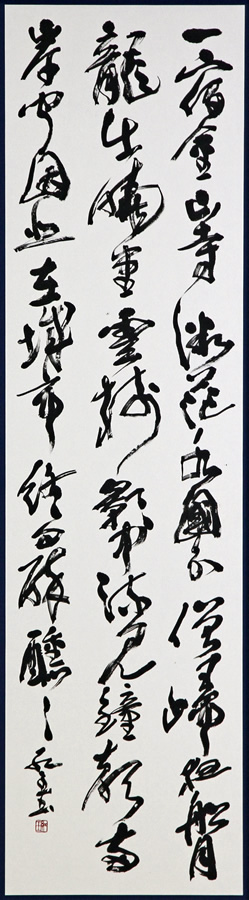 一宿金山寺微茫水國分僧歸夜船月
龍出曉堂雲樹影中流見鐘聲兩
岸聞因悲在城市終日醉醺々